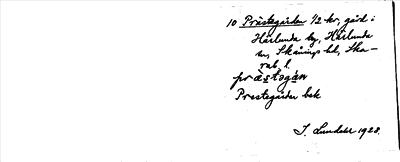 10 Prästegården 1/2 kr, gård i
Härlunda by, Härlunda
sn, Skånings hd, Ska-
rab. l.
präst⁠ə gán
Prestegården bsk
J. Lundahl 1928.